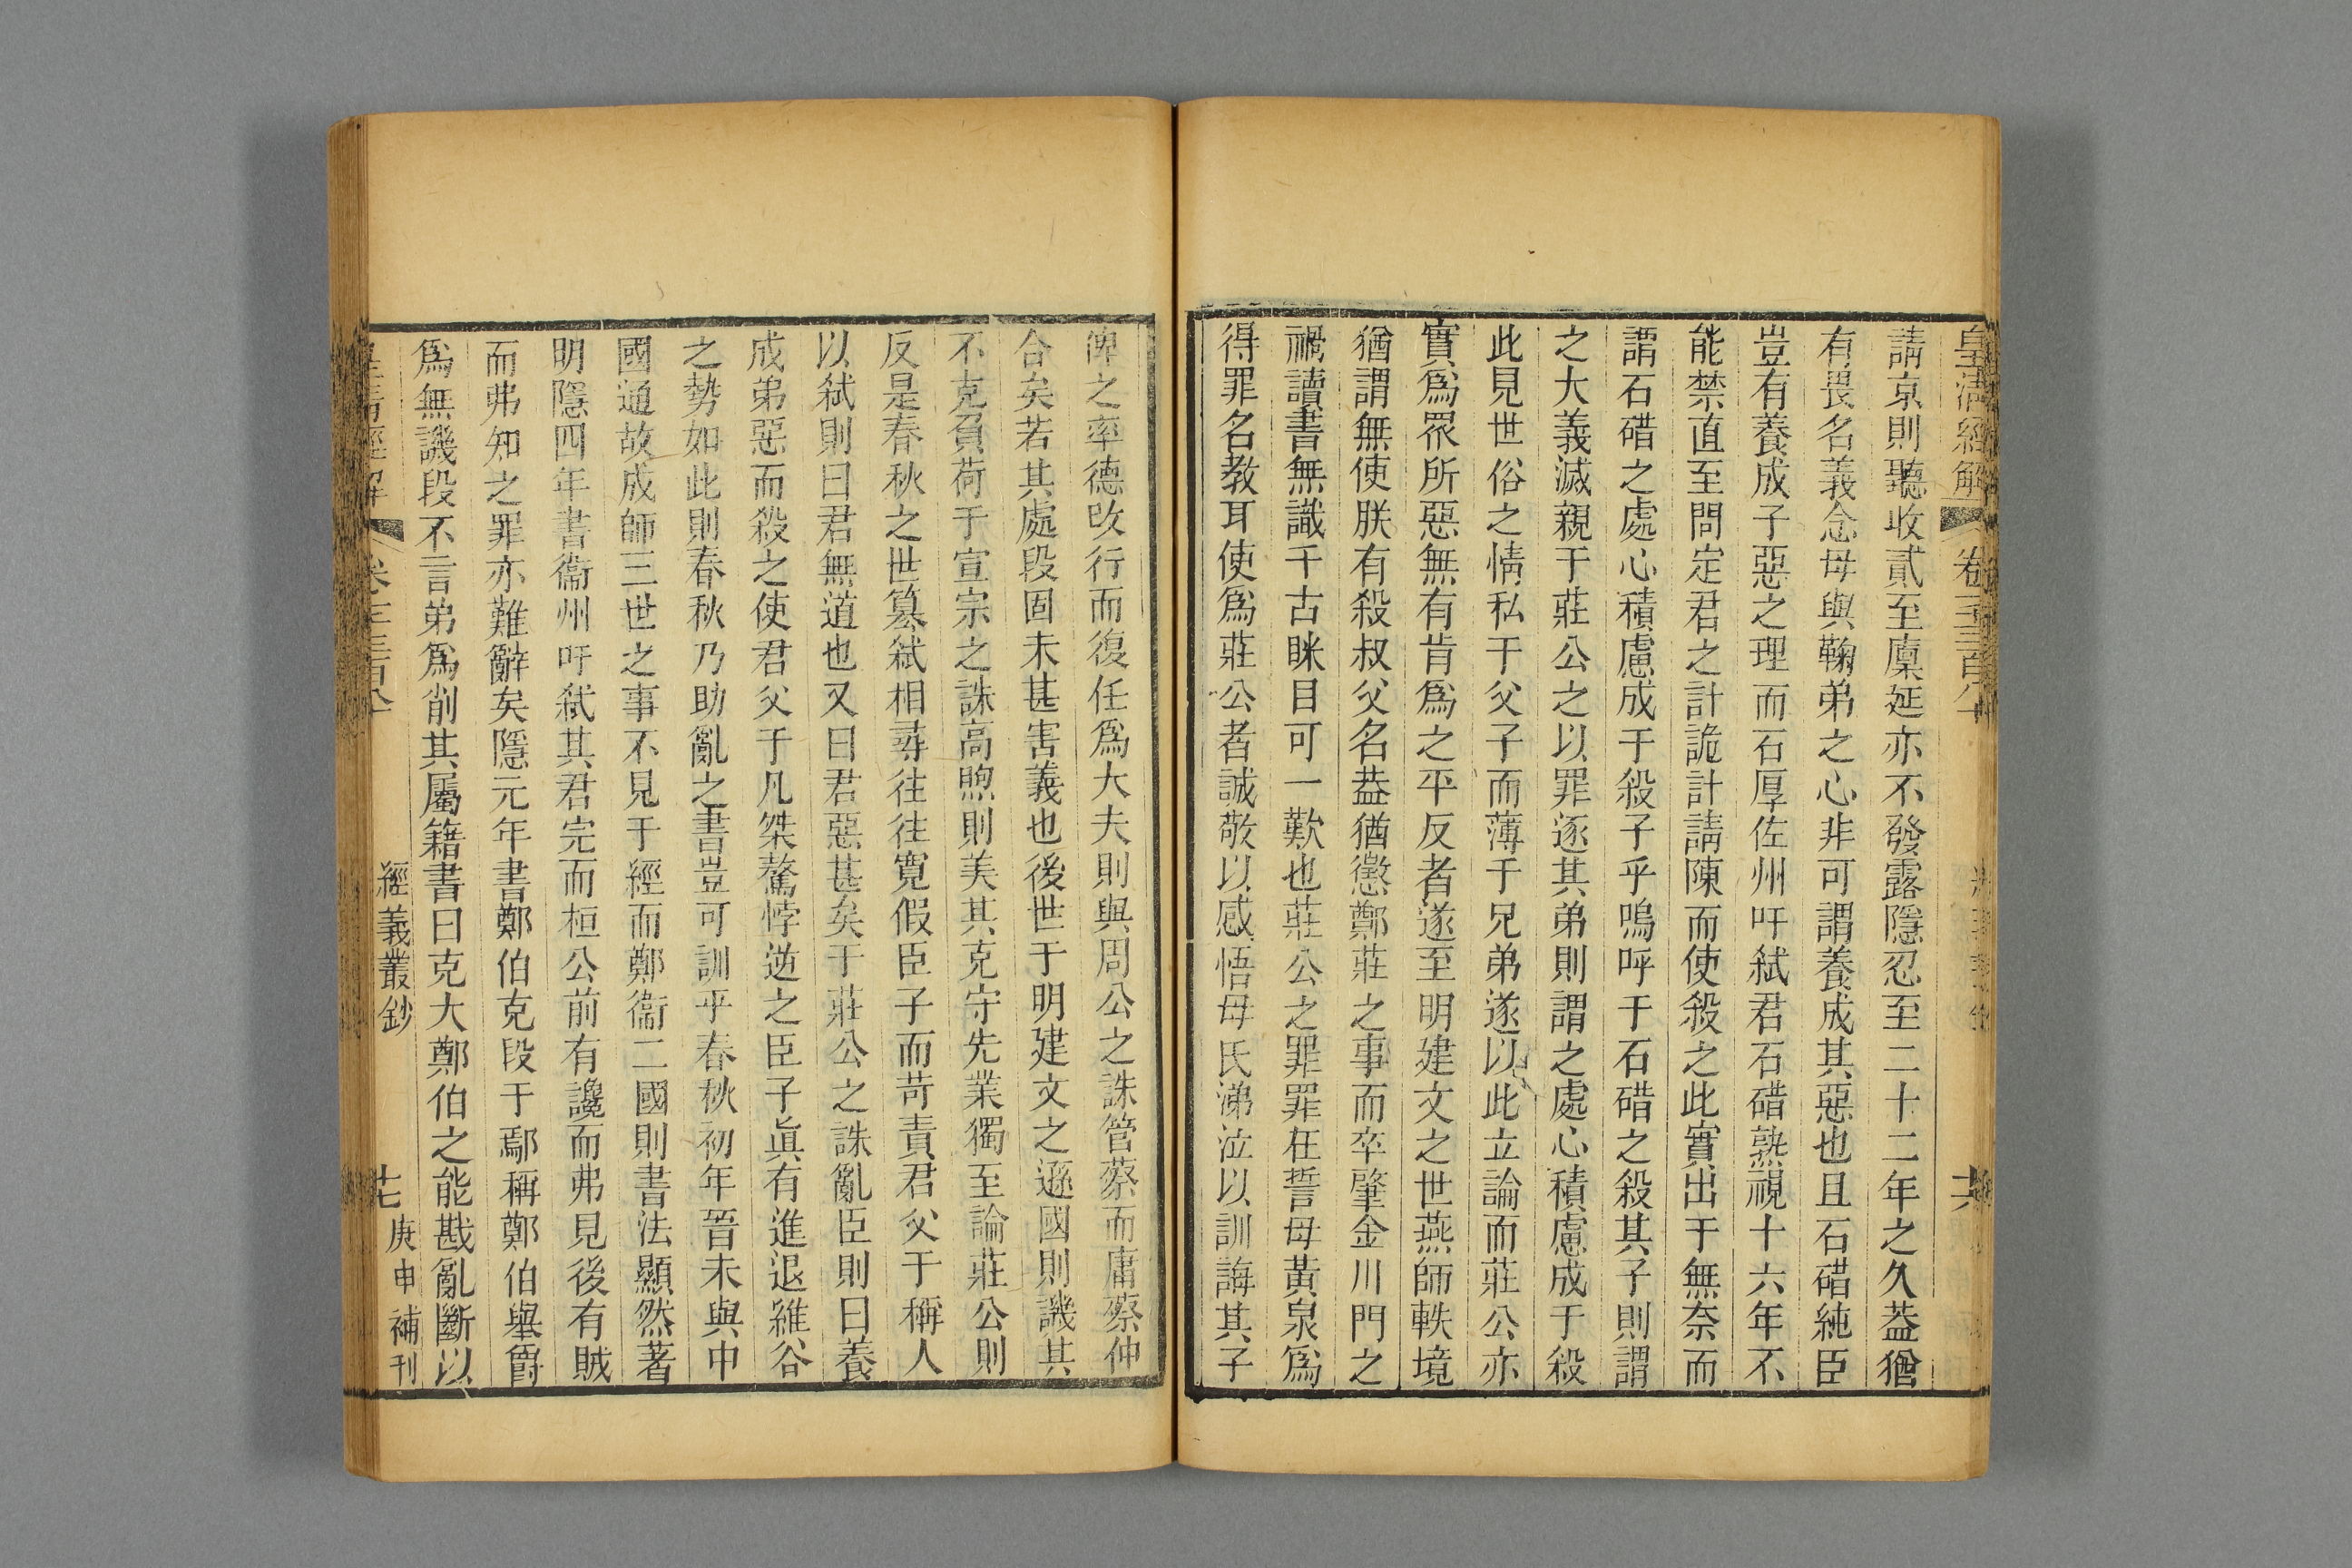 皇清經解 卷一千三百八十 六
請京則聽收貳至廩延亦不發露隱忍至二十二年之久葢猶
有畏名義念母與鞠弟之心非可謂養成其惡也且石碏純臣
豈有養成子惡之理而石厚佐州吁弑君石碏熟視十六年不
能禁直至問定君之計詭計請陳而使殺之此實出于無奈而
謂石碏之處心積慮成于殺子乎嗚呼于石碏之殺其子則謂
之大義滅親于莊公之以罪逐其弟則謂之處心積慮成于殺
此見世俗之情私于父子而薄于兄弟遂以此立論而莊公亦
實爲眾所惡無有肯爲之平反者遂至明建文之世燕師軼境
猶謂無使朕有殺叔父名葢猶懲鄭莊之事而卒肇金川門之
禍讀書無識千古眯目可一歎也莊公之罪罪在誓母黃泉爲
得罪名教耳使爲莊公者誠敬以感悟母氏涕泣以訓誨其子
俾之率德改行而復任爲大夫則與周公之誅管蔡而庸蔡仲
合矣若其處段固未甚害義也後世于明建文之遜國則譏其
不克負荷于宣宗之誅高煦則美其克守先業獨至論莊公則
反是春秋之世篡弑相尋往往寬假臣子而苛責君父于稱人
以弑則曰君無道也又曰君惡甚矣于莊公之誅亂臣則曰養
成弟惡而殺之使君父于凡桀驁悖逆之臣子眞有進退維谷
之勢如此則春秋乃助亂之書豈可訓乎春秋初年晉未與中
國通故成師三世之事不見于經而鄭衞二國則書法顯然著
明隱四年書衞州吁弑其君完而桓公前有讒而弗見後有賊
而弗知之罪亦難辭矣隱元年書鄭伯克段于鄢稱鄭伯舉爵
爲無譏段不言弟爲削其屬籍書曰克大鄭伯之能戡亂斷以
經義叢鈔 七 庚申補刊